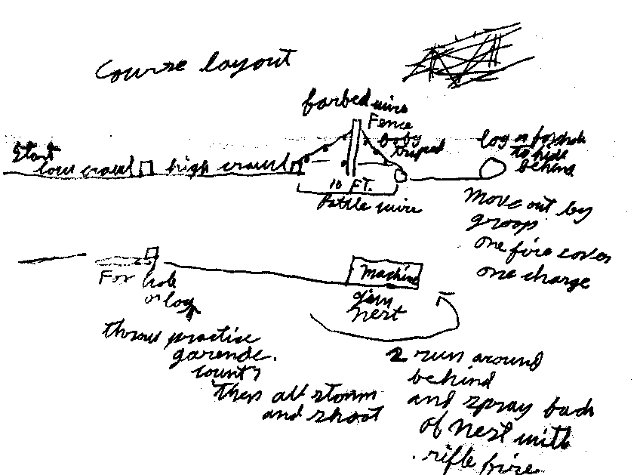 Course layout
barbed wire
Fence
booby
triped
Start
low crawl high crawl
log or foxhole
to hide
behind
10 FT.
Battle wire
Move out by
groop
one fire cover
one charge
For hole
or log
Machine
gun
nest
throw practise
garende.
count
then all storm
and shoot
2 run around
behind
and spray back
of nest with
rifle fire